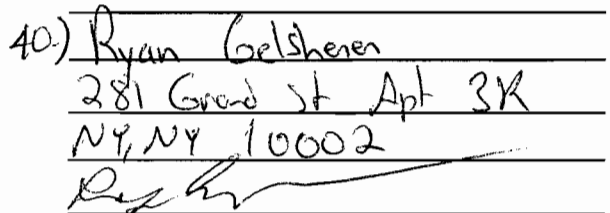 40.) Ryan Gelshenen
281 Grand St Apt 3K
NY, NY 10002